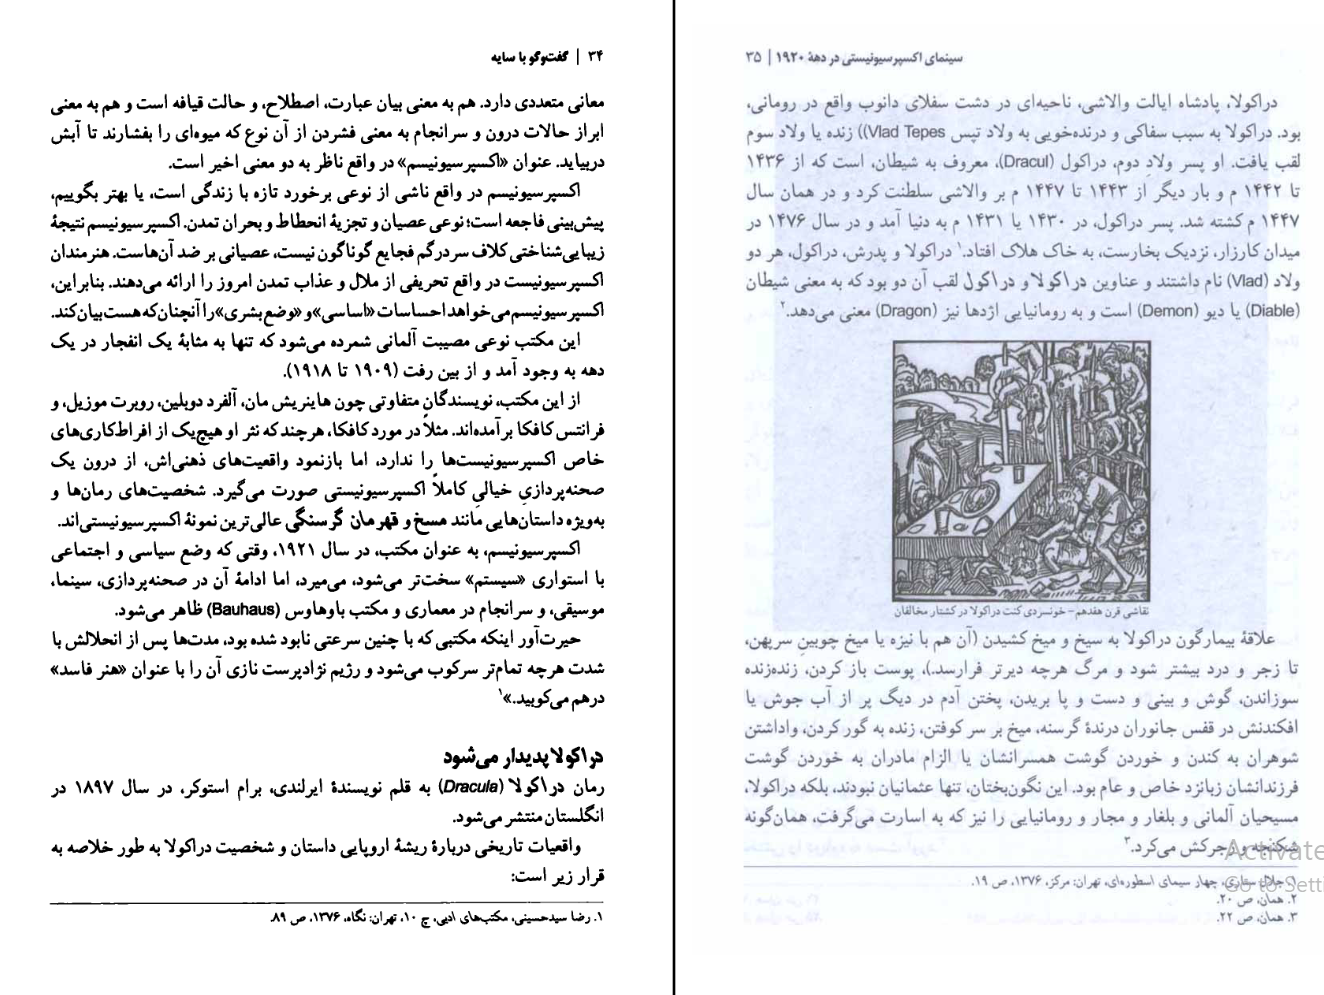 ۳۴ | گفت‌وگو با سایه
معانی متعددی دارد. هم به معنی بیان عبارت، اصطلاح، و حالت قیافه است و هم به معنی
ابراز حالات درون و سرانجام به معنی فشردن از آن نوع که میوه‌ای را بفشارند تا آبش
دربیاید. عنوان «اکسپرسیونیسم» در واقع ناظر به دو معنی اخیر است.
اکسپرسیونیسم در واقع ناشی از نوعی برخورد تازه با زندگی است، یا بهتر بگوییم،
پیش‌بینی فاجعه است؛ نوعی عصیان و تجزیهٔ انحطاط و بحران تمدن. اکسپرسیونیسم نتیجهٔ
زیبایی‌شناختی کلاف سردرگم فجایع گوناگون نیست، عصیانی بر ضد آن‌هاست. هنرمندان
اکسپرسیونیست در واقع تحریفی از ملال و عذاب تمدن امروز را ارائه می‌دهند. بنابراین،
اکسپرسیونیسم می‌خواهد احساسات «اساسی» و «وضع بشری» را آنچنان که هست بیان کند.
این مکتب نوعی مصیبت آلمانی شمرده می‌شود که تنها به مثابهٔ یک انفجار در یک
دهه به وجود آمد و از بین رفت (۱۹۰۹ تا ۱۹۱۸).
از این مکتب، نویسندگان متفاوتی چون هاینریش مان، آلفرد دوبلین، روبرت موزیل، و
فرانتس کافکا برآمده‌اند. مثلاً در مورد کافکا، هرچند که نثر او هیچ‌یک از افراط‌کاری‌های
خاص اکسپرسیونیست‌ها را ندارد، اما بازنمود واقعیت‌های ذهنی‌اش، از درون یک
صحنه‌پردازیِ خیالیِ کاملاً اکسپرسیونیستی صورت می‌گیرد. شخصیت‌های رمان‌ها و
به‌ویژه داستان‌هایی مانند مسخ و قهرمان گرسنگی عالی‌ترین نمونهٔ اکسپرسیونیستی‌اند.
اکسپرسیونیسم، به عنوان مکتب، در سال ۱۹۲۱، وقتی که وضع سیاسی و اجتماعی
با استواری «سیستم» سخت‌تر می‌شود، می‌میرد، اما ادامهٔ آن در صحنه‌پردازی، سینما،
موسیقی، و سرانجام در معماری و مکتب باوهاوس (Bauhaus) ظاهر می‌شود.
حیرت‌آور اینکه مکتبی که با چنین سرعتی نابود شده بود، مدت‌ها پس از انحلالش با
شدت هرچه تمام‌تر سرکوب می‌شود و رژیم نژادپرست نازی آن را با عنوان «هنر فاسد»
درهم می‌کوبید.»۱
دراکولا پدیدار می‌شود
رمان دراکولا (Dracula) به قلم نویسندهٔ ایرلندی، برام استوکر، در سال ۱۸۹۷ در
انگلستان منتشر می‌شود.
واقعیات تاریخی دربارهٔ ریشهٔ اروپایی داستان و شخصیت دراکولا به طور خلاصه به
قرار زیر است:
۱. رضا سیدحسینی، مکتب‌های ادبی، چ ۱۰، تهران: نگاه، ۱۳۷۶، ص ۸۹.
سینمای اکسپرسیونیستی در دههٔ ۱۹۲۰ | ۳۵
دراکولا، پادشاه ایالت والاشی، ناحیه‌ای در دشت سفلای دانوب واقع در رومانی،
بود. دراکولا به سبب سفاکی و درنده‌خویی به ولاد تپس Vlad Tepes)) زنده یا ولاد سوم
لقب یافت. او پسر ولادِ دوم، دراکول (Dracul)، معروف به شیطان، است که از ۱۴۳۶
تا ۱۴۴۲ م و بار دیگر از ۱۴۴۳ تا ۱۴۴۷ م بر والاشی سلطنت کرد و در همان سال
۱۴۴۷ م کشته شد. پسر دراکول، در ۱۴۳۰ یا ۱۴۳۱ م به دنیا آمد و در سال ۱۴۷۶ در
میدان کارزار، نزدیک بخارست، به خاک هلاک افتاد.۱ دراکولا و پدرش، دراکول، هر دو
ولاد (Vlad) نام داشتند و عناوین دراکولا و دراکول لقب آن دو بود که به معنی شیطان
(Diable) یا دیو (Demon) است و به رومانیایی اژدها نیز (Dragon) معنی می‌دهد.۲
نقاشی قرن هفدهم – خونسردی کنت دراکولا در کشتار مخالفان
علاقهٔ بیمارگون دراکولا به سیخ و میخ کشیدن (آن هم با نیزه یا میخ چوبینِ سرپهن،
تا زجر و درد بیشتر شود و مرگ هرچه دیرتر فرارسد.)، پوست باز کردن، زنده‌زنده
سوزاندن، گوش و بینی و دست و پا بریدن، پختن آدم در دیگ پر از آب جوش یا
افکندنش در قفس جانوران درندهٔ گرسنه، میخ بر سر کوفتن، زنده به گور کردن، واداشتن
شوهران به کندن و خوردن گوشت همسرانشان یا الزام مادران به خوردن گوشت
فرزندانشان زبانزد خاص و عام بود. این نگون‌بختان، تنها عثمانیان نبودند، بلکه دراکولا،
مسیحیان آلمانی و بلغار و مجار و رومانیایی را نیز که به اسارت می‌گرفت، همان‌گونه
شکنجه و زجرکش می‌کرد.۳
Activate
۱. جلال ستاری، چهار سیمای اسطوره‌ای، تهران: مرکز، ۱۳۷۶، ص ۱۹.
Go to Setti
۲. همان، ص ۲۰.
۳. همان، ص ۲۲.